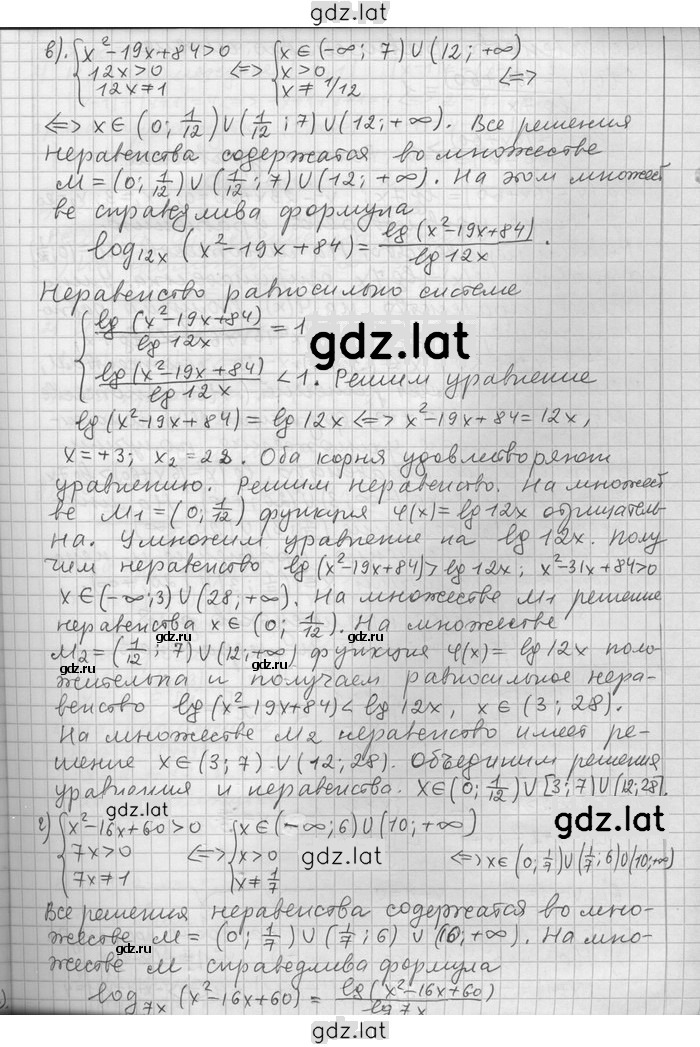 gdz.lat
в). { x²-19x+84>0  { x∈(-∞; 7)∪(12; +∞)
12x>0 <=> x>0 <=>
12x≠1  x≠1/12
<=> x∈(0; 1/12)∪(1/12; 7)∪(12; +∞). Все решения
неравенства содержатся во множестве
M=(0; 1/12)∪(1/12; 7)∪(12; +∞). На этом множест
ве справедлива формула
log₁₂ₓ (x²-19x+84) = lg(x²-19x+84)/lg 12x.
Неравенство равносильно системе
{ lg(x²-19x+84)/lg 12x = 1
gdz.lat
lg(x²-19x+84)/lg 12x < 1. Решим уравнение
lg(x²-19x+84) = lg 12x <=> x²-19x+84=12x,
x=+3; x₂=28. Оба корня удовлетворяют
уравнению. Решим неравенство. На множест
ве M₁=(0; 1/12) функция φ(x)=lg 12x отрицатель
на. Умножим уравнение на lg 12x. Полу
чим неравенство lg(x²-19x+84)>lg 12x; x²-31x+84>0
x∈(-∞;3)∪(28; +∞). На множестве M₁ решение
неравенства x∈(0; 1/12). На множестве
gdz.lat
gdz.ru
M₂=(1/12; 7)∪(12;+∞) функция φ(x)=lg 12x поло-
gdz.ru
жительна и получаем равносильное нера-
венство lg(x²-19x+84)<lg 12x, x∈(3; 28).
На множестве M₂ неравенство имеет ре-
шение x∈(3; 7) ∪(12; 28). Объединим решения
уравнения и неравенства. x∈(0; 1/12)∪[3; 7)∪(12; 28].
gdz.lat
gdz.lat
г) { x²-16x+60>0  { x∈(-∞;6)∪(10; +∞)
7x>0 <=> x>0 <=> x∈(0; 1/7)∪(1/7; 6)∪(10;+∞)
gdz.lat
7x≠1  x≠1/7
Все решения неравенства содержатся во мно-
жестве M=(0; 1/7)∪(1/7; 6) ∪ (10; +∞). На мно-
жестве M справедлива формула
log₇ₓ (x²-16x+60) = lg(x²-16x+60)/lg 7x
gdz.lat